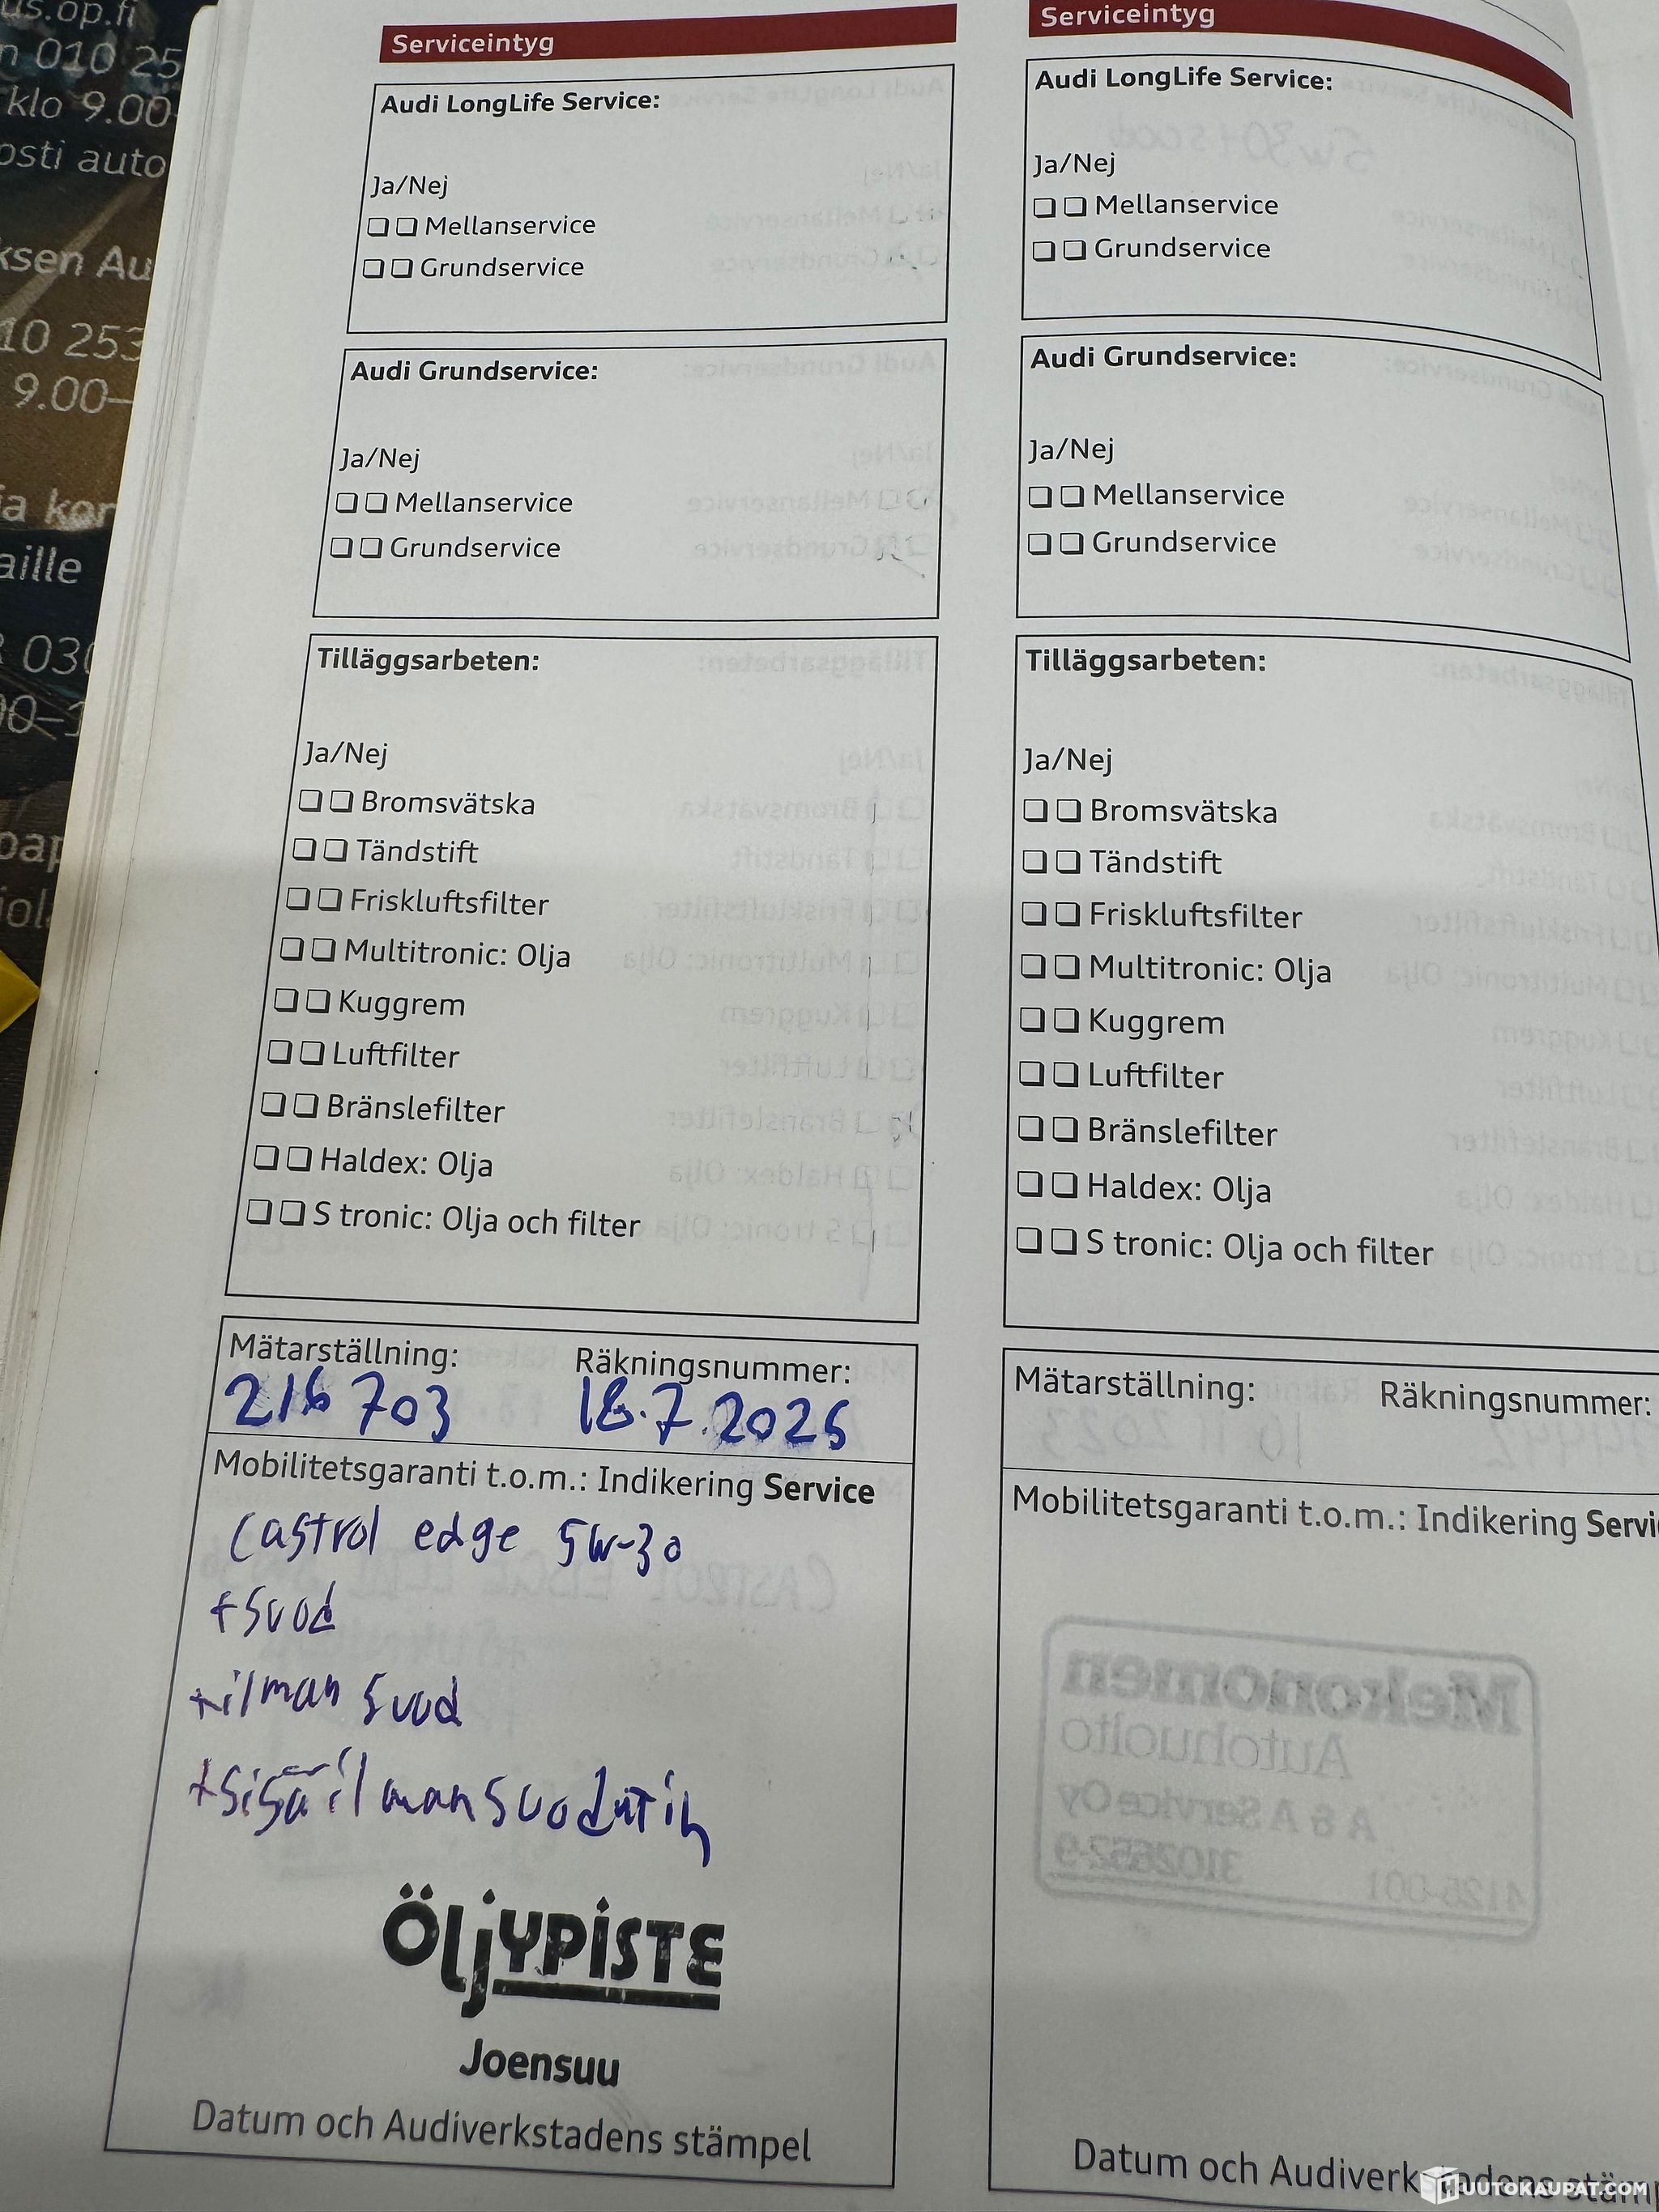 us.op.fi
n 010 25
klo 9.00
osti auto
ksen Au
10 253
9.00–
ja kor
aille
030
00–1
Serviceintyg
Audi LongLife Service:
Ja/Nej
❏ ❏ Mellanservice
❏ ❏ Grundservice
Audi Grundservice:
Ja/Nej
❏ ❏ Mellanservice
❏ ❏ Grundservice
Tilläggsarbeten:
Ja/Nej
❏ ❏ Bromsvätska
❏ ❏ Tändstift
❏ ❏ Friskluftsfilter
❏ ❏ Multitronic: Olja
❏ ❏ Kuggrem
❏ ❏ Luftfilter
❏ ❏ Bränslefilter
❏ ❏ Haldex: Olja
❏ ❏ S tronic: Olja och filter
Mätarställning: Räkningsnummer:
216 703 18.7.2025
Mobilitetsgaranti t.o.m.: Indikering Service
Castrol edge 5W-30
+suod
+ilman suod
+sisäilmansuodatin
ÖljYPiSTE
Joensuu
Datum och Audiverkstadens stämpel
Serviceintyg
Audi LongLife Service:
Ja/Nej
❏ ❏ Mellanservice
❏ ❏ Grundservice
Audi Grundservice:
Ja/Nej
❏ ❏ Mellanservice
❏ ❏ Grundservice
Tilläggsarbeten:
Ja/Nej
❏ ❏ Bromsvätska
❏ ❏ Tändstift
❏ ❏ Friskluftsfilter
❏ ❏ Multitronic: Olja
❏ ❏ Kuggrem
❏ ❏ Luftfilter
❏ ❏ Bränslefilter
❏ ❏ Haldex: Olja
❏ ❏ S tronic: Olja och filter
Mätarställning: Räkningsnummer:
Mobilitetsgaranti t.o.m.: Indikering Servi
Mekonomen
Autohuolto
A & A Service Oy
3102652-9
4126-001
Datum och Audiverkstadens stäm
HUUTOKAUPAT.COM